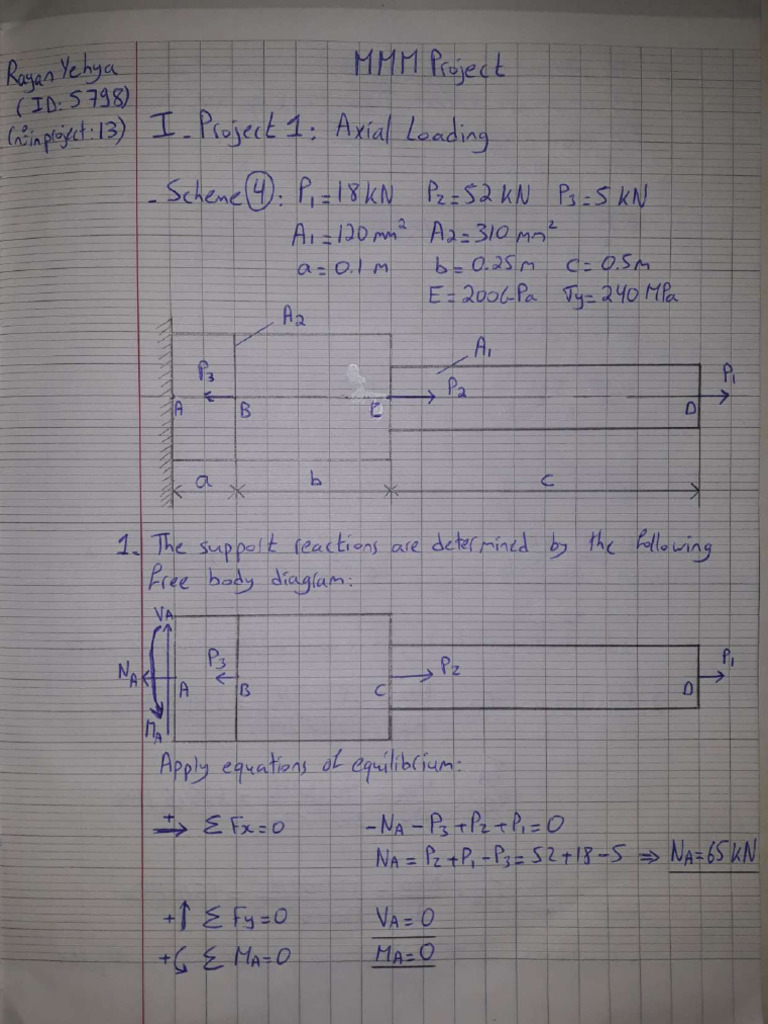 MMM Project
Rayan Yehya
(ID: 5798)
(n° in project: 13)
I - Project 1: Axial Loading
- Scheme ④: P₁ = 18 kN P₂ = 52 kN P₃ = 5 kN
A₁ = 120 mm² A₂ = 310 mm²
a = 0.1 m b = 0.25 m c = 0.5 m
E = 200 GPa σy = 240 MPa
A₂
A₁
P₃
P₂
P₁
A B C D
a b c
1. The support reactions are determined by the following
free body diagram:
VA
NA
MA
P₃
P₂
P₁
A B C D
Apply equations of equilibrium:
+→ Σ Fx = 0 -NA - P₃ + P₂ + P₁ = 0
NA = P₂ + P₁ - P₃ = 52 + 18 - 5 ⇒ NA = 65 kN
+↑ Σ Fy = 0 VA = 0
+↺ Σ MA = 0 MA = 0